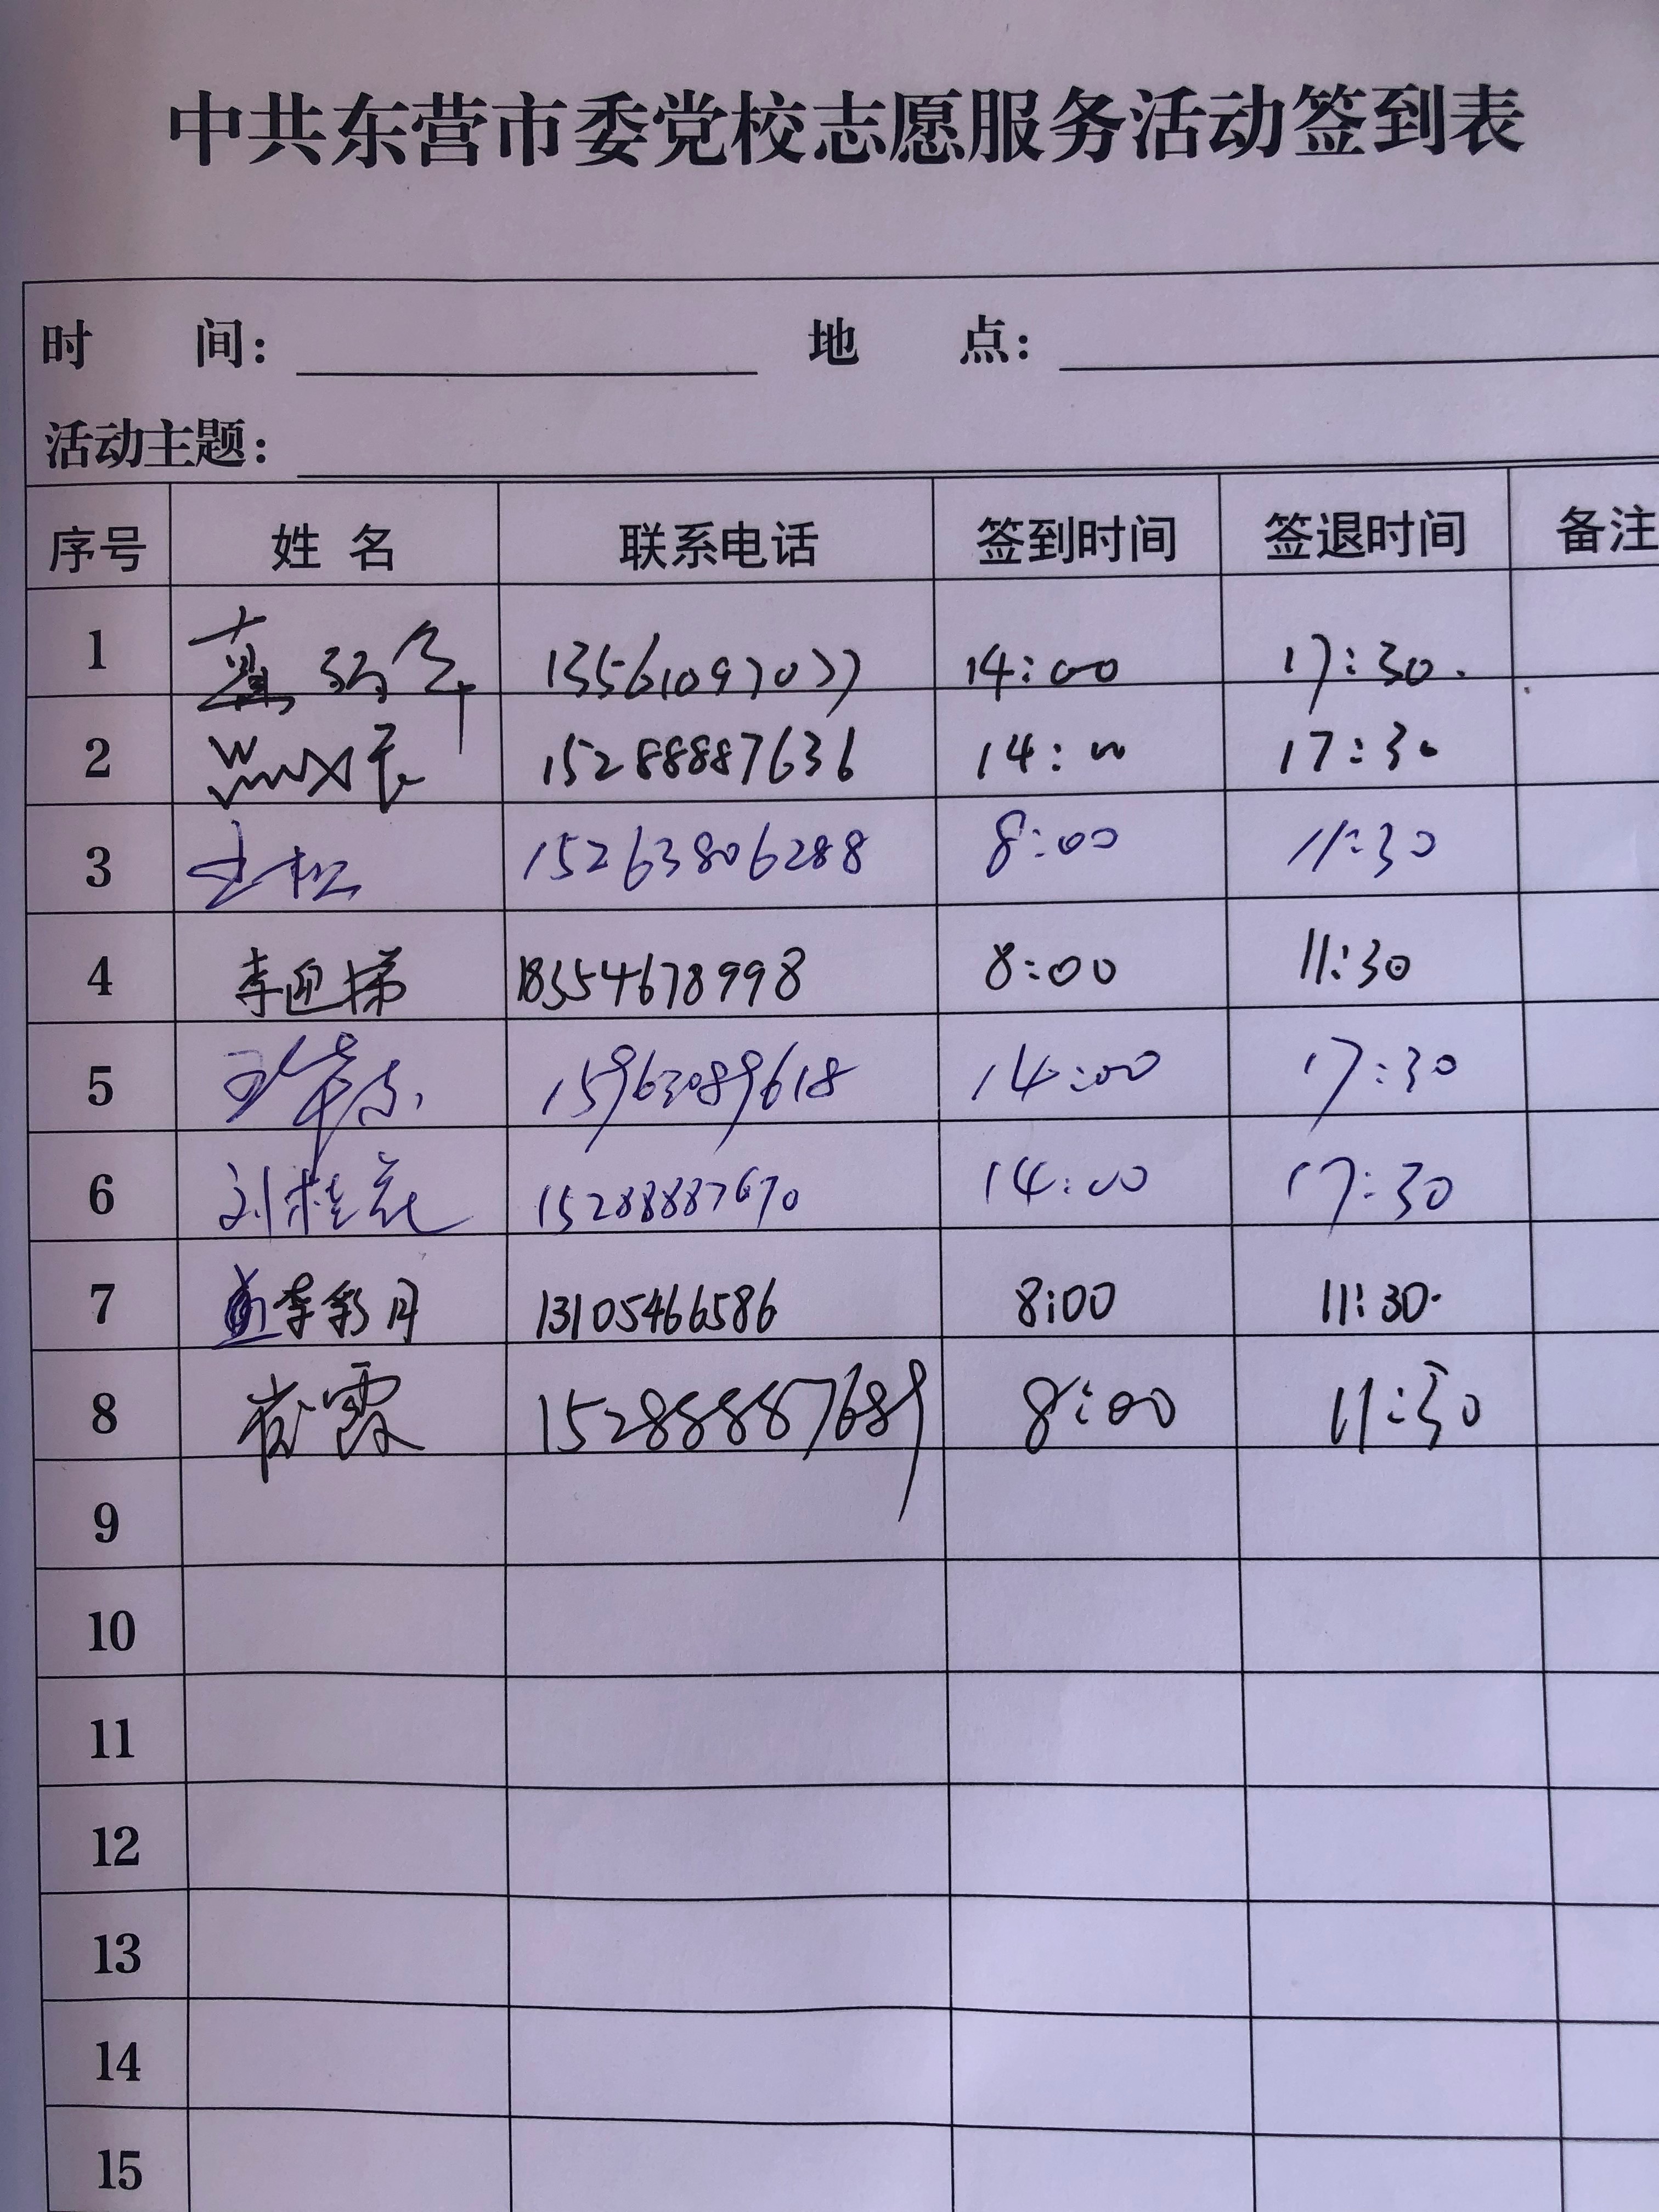 中共东营市委党校志愿服务活动签到表
时 间： 地 点：
活动主题：
序号 姓 名 联系电话 签到时间 签退时间 备注
1 13561097077 14:00 17:30.
2 15288887636 14:00 17:30
3 15263806288 8:00 11:30
4 李迎娣 18354678998 8:00 11:30
5 15963089618 14:00 17:30
6 刘桂花 15288887670 14:00 17:30
7 李彩月 13105466586 8:00 11:30.
8 崔霞 15288887689 8:00 11:30
9
10
11
12
13
14
15